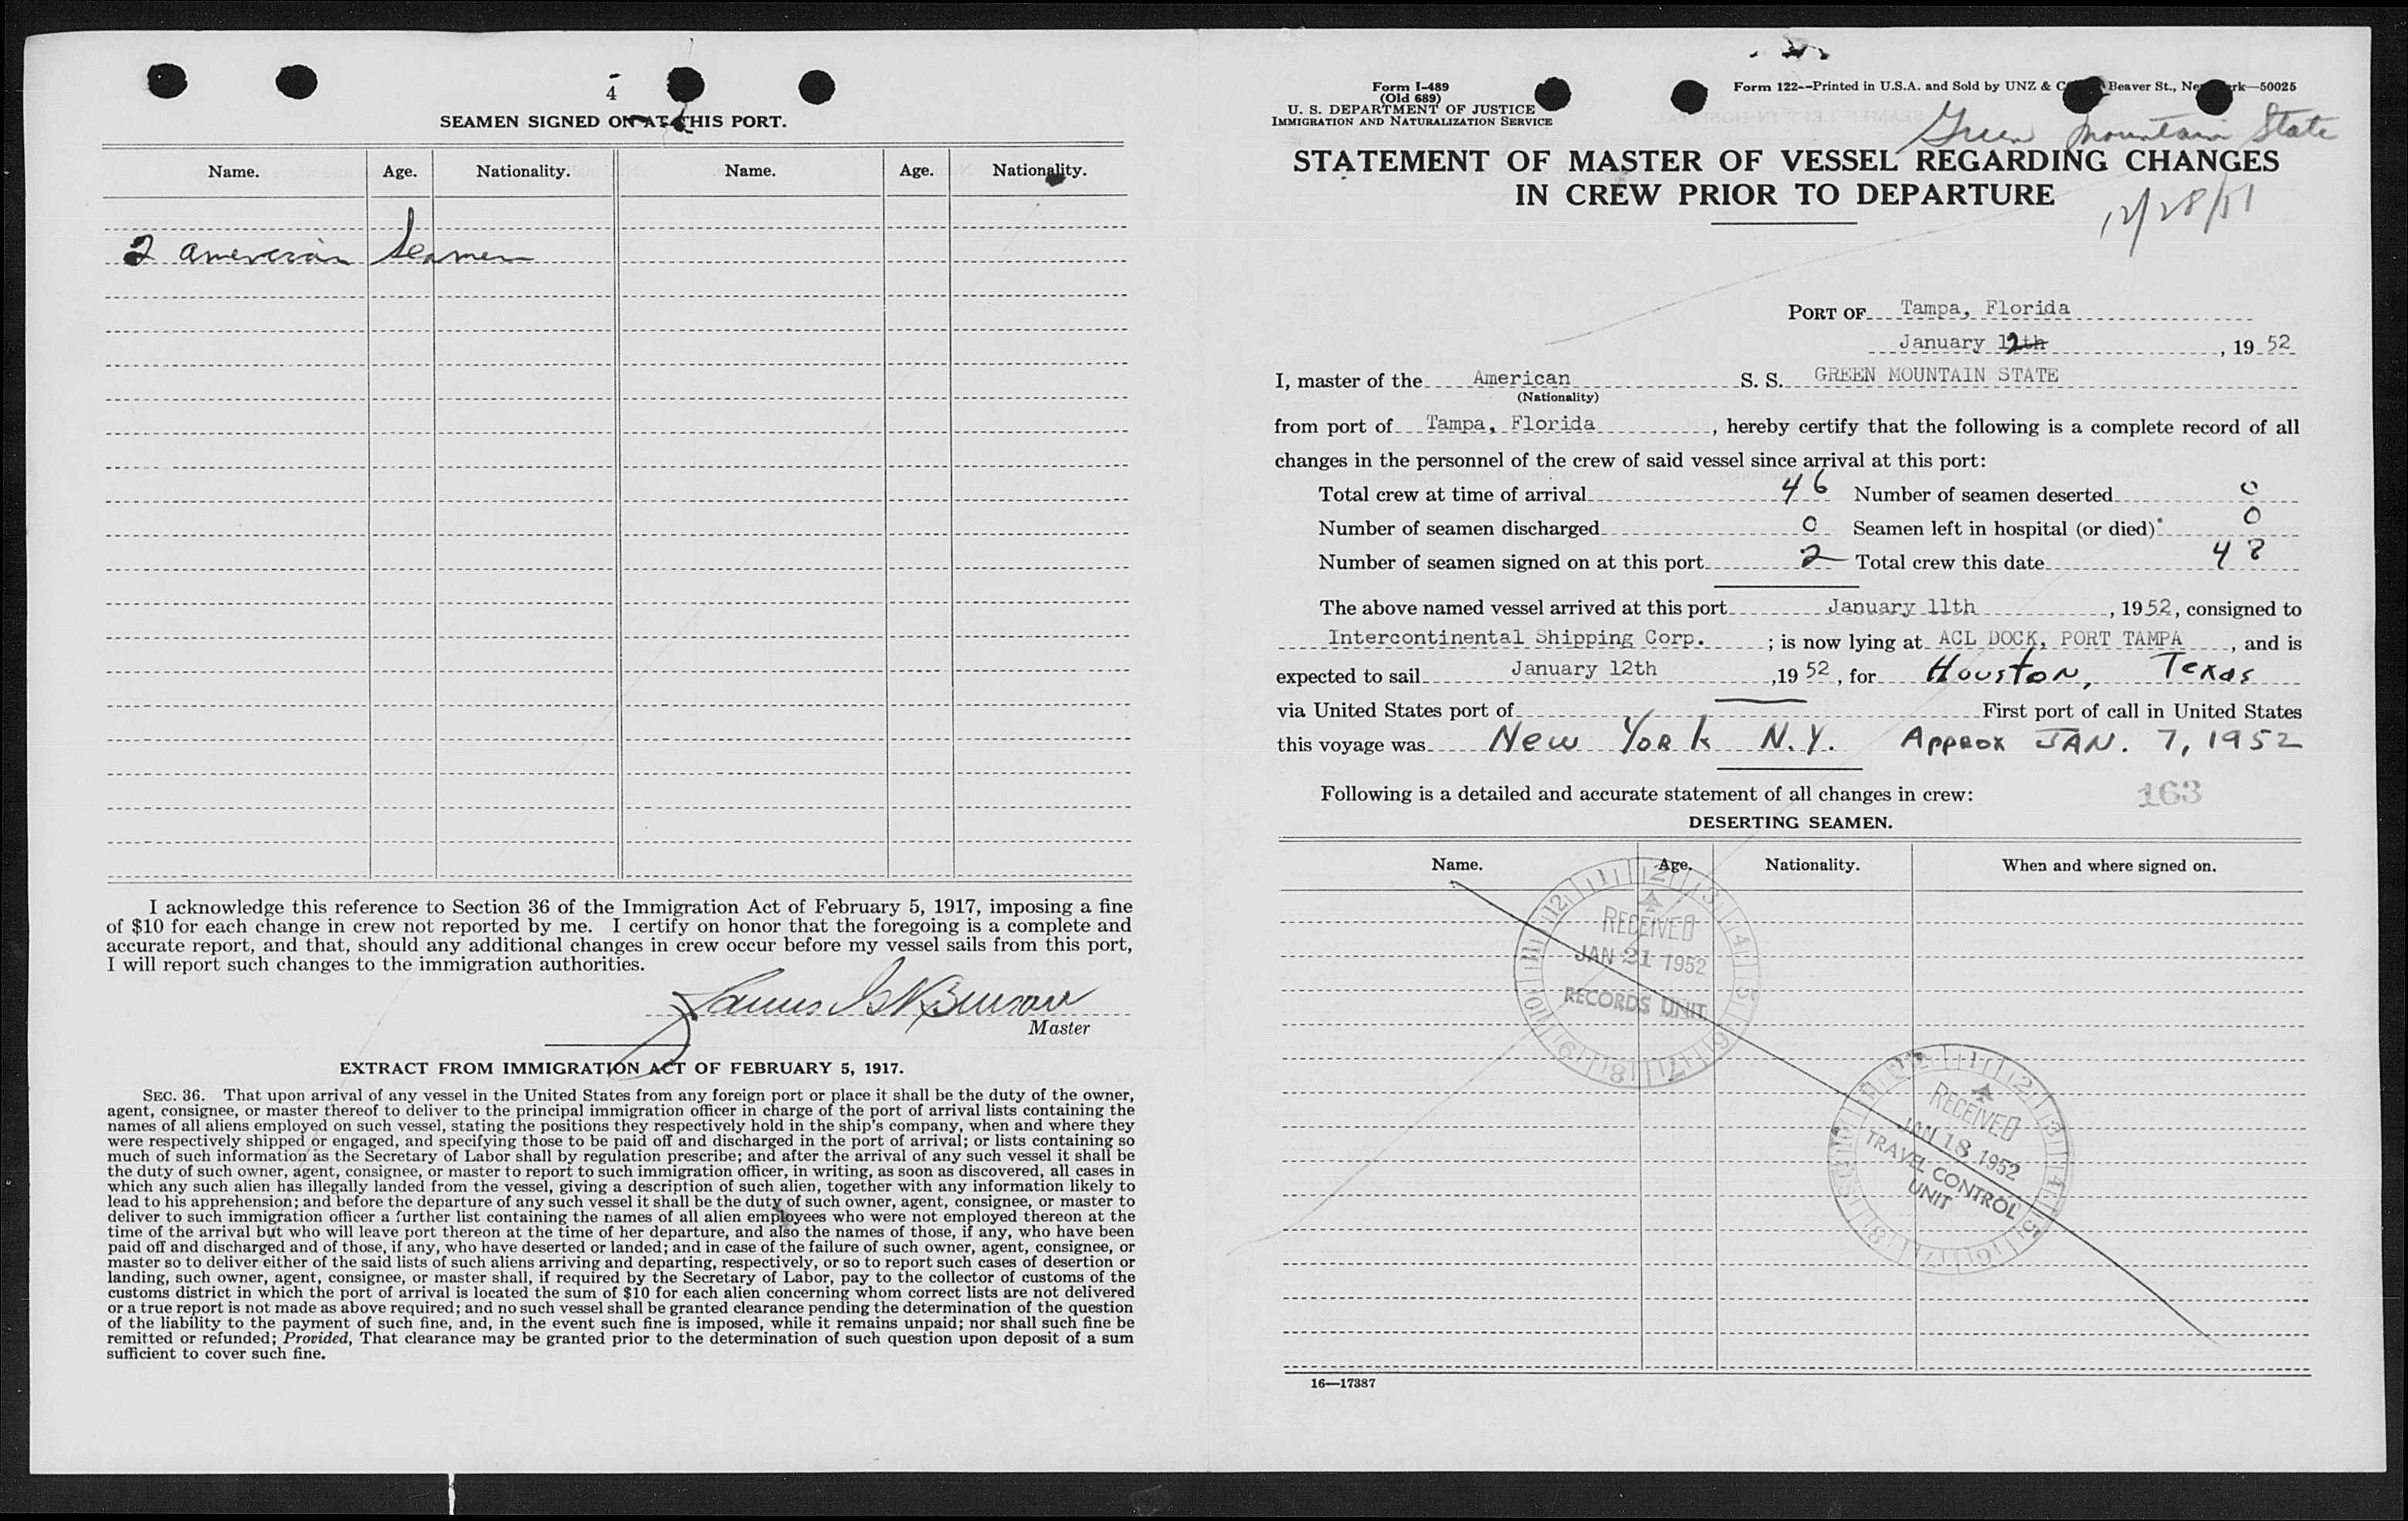 4
SEAMEN SIGNED ON AT THIS PORT.
Name. Age. Nationality. Name. Age. Nationality.
2 American Seamen
I acknowledge this reference to Section 36 of the Immigration Act of February 5, 1917, imposing a fine
of $10 for each change in crew not reported by me. I certify on honor that the foregoing is a complete and
accurate report, and that, should any additional changes in crew occur before my vessel sails from this port,
I will report such changes to the immigration authorities.
Master
EXTRACT FROM IMMIGRATION ACT OF FEBRUARY 5, 1917.
SEC. 36. That upon arrival of any vessel in the United States from any foreign port or place it shall be the duty of the owner,
agent, consignee, or master thereof to deliver to the principal immigration officer in charge of the port of arrival lists containing the
names of all aliens employed on such vessel, stating the positions they respectively hold in the ship's company, when and where they
were respectively shipped or engaged, and specifying those to be paid off and discharged in the port of arrival; or lists containing so
much of such information as the Secretary of Labor shall by regulation prescribe; and after the arrival of any such vessel it shall be
the duty of such owner, agent, consignee, or master to report to such immigration officer, in writing, as soon as discovered, all cases in
which any such alien has illegally landed from the vessel, giving a description of such alien, together with any information likely to
lead to his apprehension; and before the departure of any such vessel it shall be the duty of such owner, agent, consignee, or master to
deliver to such immigration officer a further list containing the names of all alien employees who were not employed thereon at the
time of the arrival but who will leave port thereon at the time of her departure, and also the names of those, if any, who have been
paid off and discharged and of those, if any, who have deserted or landed; and in case of the failure of such owner, agent, consignee, or
master so to deliver either of the said lists of such aliens arriving and departing, respectively, or so to report such cases of desertion or
landing, such owner, agent, consignee, or master shall, if required by the Secretary of Labor, pay to the collector of customs of the
customs district in which the port of arrival is located the sum of $10 for each alien concerning whom correct lists are not delivered
or a true report is not made as above required; and no such vessel shall be granted clearance pending the determination of the question
of the liability to the payment of such fine, and, in the event such fine is imposed, while it remains unpaid; nor shall such fine be
remitted or refunded; Provided, That clearance may be granted prior to the determination of such question upon deposit of a sum
sufficient to cover such fine.
Form I-489
(Old 689)
U. S. DEPARTMENT OF JUSTICE
IMMIGRATION AND NATURALIZATION SERVICE
Form 122--Printed in U.S.A. and Sold by UNZ & Beaver St., 50025
Green Mountain State
STATEMENT OF MASTER OF VESSEL REGARDING CHANGES
IN CREW PRIOR TO DEPARTURE
12/28/51
PORT OF Tampa, Florida
January 12th, 19 52
I, master of the American S. S. GREEN MOUNTAIN STATE
(Nationality)
from port of Tampa, Florida, hereby certify that the following is a complete record of all
changes in the personnel of the crew of said vessel since arrival at this port:
Total crew at time of arrival 46 Number of seamen deserted 0
Number of seamen discharged 0 Seamen left in hospital (or died)* 0
Number of seamen signed on at this port 2 Total crew this date 48
The above named vessel arrived at this port January 11th, 1952, consigned to
Intercontinental Shipping Corp. ; is now lying at ACL DOCK, PORT TAMPA, and is
expected to sail January 12th ,19 52, for Houston, Texas
via United States port of First port of call in United States
this voyage was New York N.Y. Approx JAN. 7, 1952
Following is a detailed and accurate statement of all changes in crew: 163
DESERTING SEAMEN.
Name. Age. Nationality. When and where signed on.
12 1 2 3 4 5 6 7 8 9 10 11
RECEIVED
JAN 21 1952
RECORDS UNIT
RECEIVED
JAN 18 1952
TRAVEL CONTROL
UNIT
16—17387